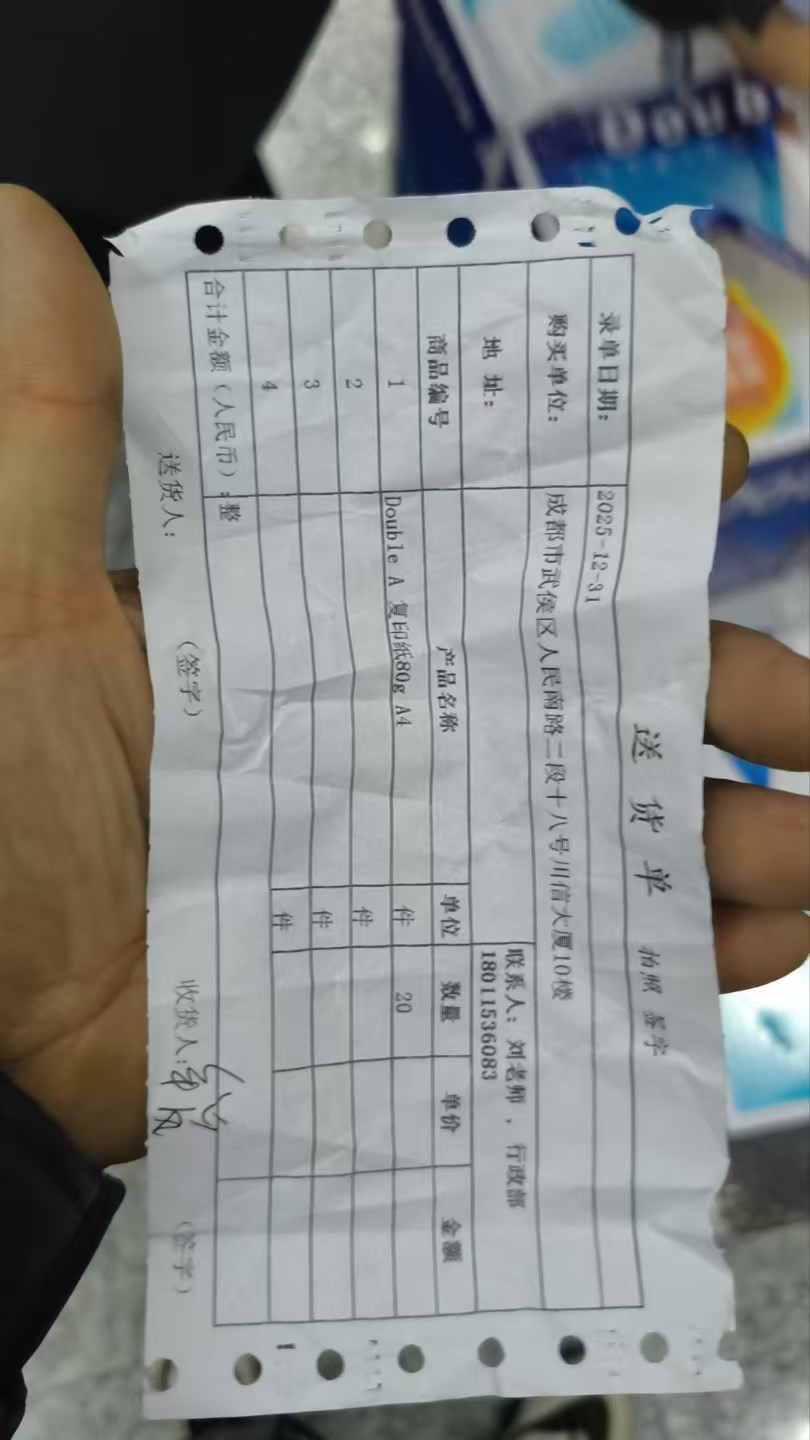 送 货 单 拍照 签字
录单日期: 2025-12-31
购买单位: 成都市武侯区人民南路二段十八号川信大厦10楼
地 址: 联系人: 刘老师 , 行政部
18011536083
商品编号 产品名称 单位 数量 单价 金额
1 Double A 复印纸80g A4 件 20
2 件
3 件
4 件
合计金额(人民币): 整
送货人: (签字) 收货人: (签字)
Doub